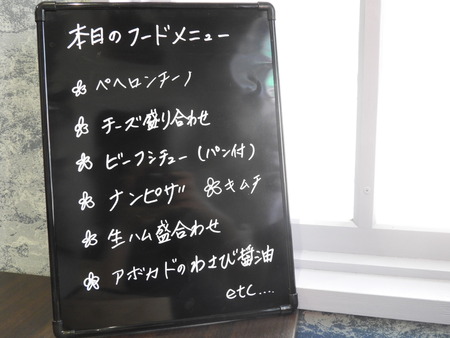 本日のフードメニュー
ペペロンチーノ
チーズ盛り合わせ
ビーフシチュー(パン付)
ナンピザ キムチ
生ハム盛合わせ
アボカドのわさび醤油
etc....